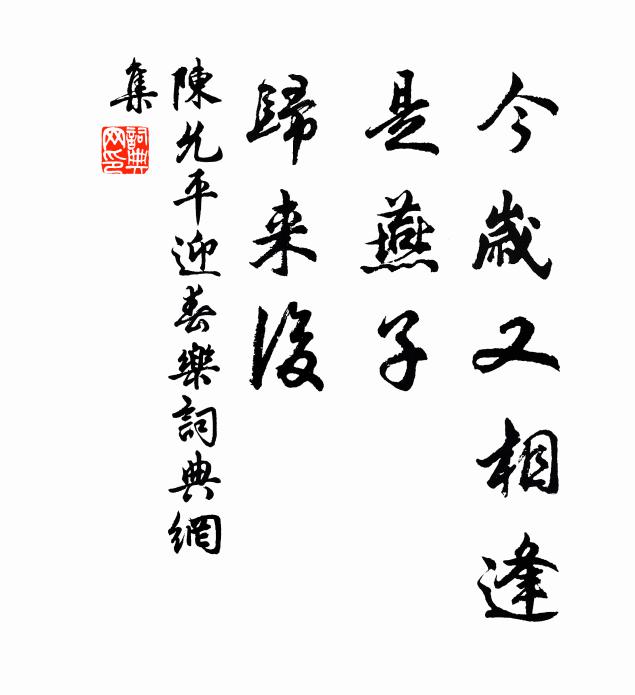 今歲又相逢
是燕子
歸来後
陳允平迎春樂詞典網
集
詞典
网印